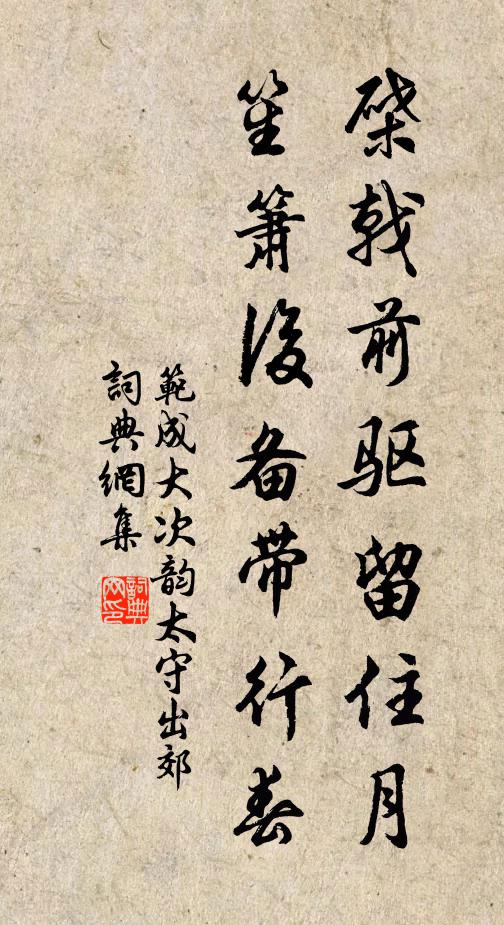 棨戟前驱留住月
笙箫後备带行春
範成大次韵太守出郊
詞典網集
詞典网印